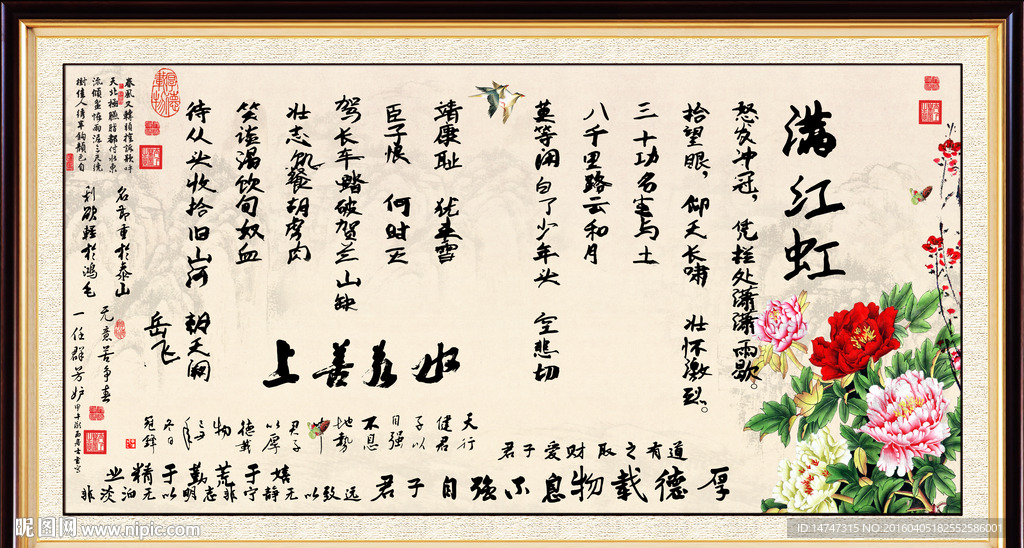 满红虹
怒发冲冠，凭栏处潇潇雨歇。
抬望眼，仰天长啸 壮怀激烈。
三十功名尘与土
八千里路云和月
莫等闲 白了少年头 空悲切
靖康耻 犹未雪
臣子恨 何时灭
驾长车踏破贺兰山缺
壮志饥餐胡虏肉
笑谈渴饮匈奴血
待从头收拾旧山河 朝天阙
岳飞
上善若水
天行
健君
子以
自强
不息
地势
君子
以厚
德载
物
冬日
君子爱财 取之有道
厚德载物
君子自强不息
业精于勤荒于嬉
非淡泊无以明志非宁静无以致远
名节重于泰山
利欲轻于鸿毛
无意苦争春
一任群芳妒
厚德载物
昵图网 www.nipic.com
ID:14747315 NO:20160405182552586001